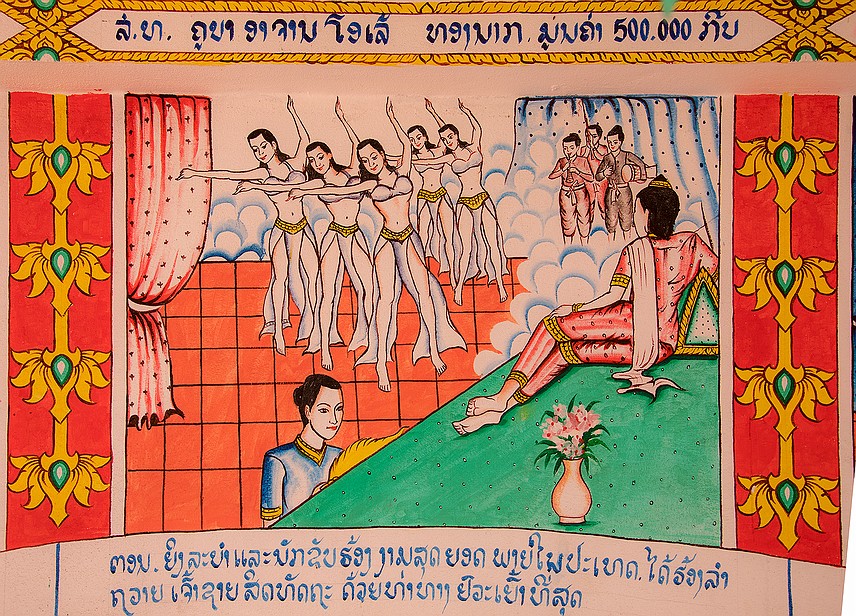 ສ.ຍາ. ຄູບາ ອາຈານ ໂອເລ້ ທອງນາກ. ມູນຄ່າ 500.000 ກີບ
ຕອນ. ຍິງລະບຳ ແລະ ນັກຂັບຮ້ອງ ງາມສຸດຍອດ ພາຍໃນປະເທດ. ໄດ້ຮ້ອງລຳ
ຖວາຍ ເຈົ້າຊາຍ ສິດທັດຖະ ດ້ວຍທ່າທາງ ຢົວະເຍົ້າ ທີ່ສຸດ